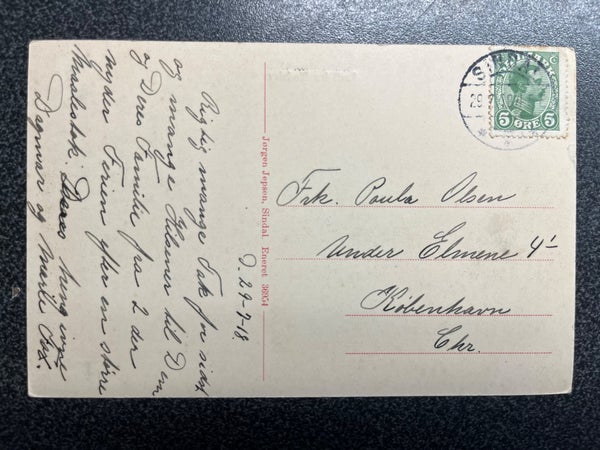 D. 29-7-18.
Rigtig mange Tak for sidst
og mange Hilsner til Dem
og Deres Familie fra 2 der
nyder Ferien efter en större
Maalestok. Deres hengivne
Dagmar og
Jørgen Jepsen, Sindal. Eneret 36954
SINDAL
29.7
5 ØRE 5
Frk. Paula Olsen
Under Elmene 4
København
Chr.